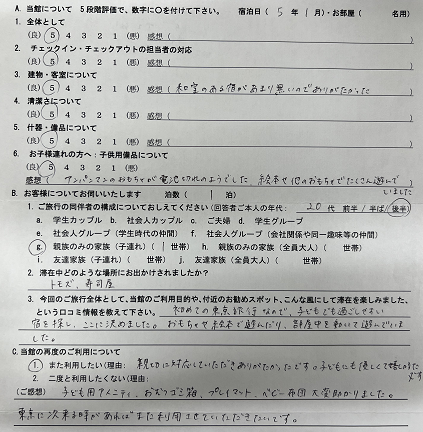 A. 当館について 5段階評価で、数字に○を付けて下さい。 宿泊日(5年1月)・お部屋( 名用)
1. 全体として
(良) 5 4 3 2 1 (悪) 感想( )
2. チェックイン・チェックアウトの担当者の対応
(良) 5 4 3 2 1 (悪) 感想( )
3. 建物・客室について
(良) 5 4 3 2 1 (悪) 感想(和室のある宿があまり無いのでありがたかった)
4. 清潔さについて
(良) 5 4 3 2 1 (悪) 感想( )
5. 什器・備品について
(良) 5 4 3 2 1 (悪) 感想( )
6. お子様連れの方へ:子供用備品について
(良) 5 4 3 2 1 (悪)
感想(アンパンマンのおもちゃが電池切れのようでした。絵本や他のおもちゃでたくさん遊んで
いました)
B. お客様についてお伺いいたします 泊数( 1 泊)
1. ご旅行の同伴者の構成についておしえてください(回答者ご本人の年代: 20代 前半/半ば/後半)
a. 学生カップル b. 社会人カップル c. ご夫婦 d. 学生グループ
e. 社会人グループ(学生時代の仲間) f. 社会人グループ(会社関係や同一趣味等の仲間)
g. 親族のみの家族(子連れ)( 1 世帯) h. 親族のみの家族(全員大人)( 世帯)
i. 友達家族(子連れ)( 世帯) j. 友達家族(全員大人)( 世帯)
2. 滞在中どのような場所にお出かけされましたか?
トモズ、寿司屋
3. 今回のご旅行全体として、当館のご利用目的や、付近のお勧めスポット、こんな風にして滞在を楽しみました、
という口コミ情報を教えて下さい。 初めての東京旅行なので、子どもでも過ごしやすい
宿を探し、ここに決めました。おもちゃや絵本で遊んだり、部屋中を動いて遊んでいま
した。
C. 当館の再度のご利用について
1. また利用したい(理由: 親切に対応していただきありがたかったです。子どもにも優しくて嬉しかった
です
2. 二度と利用したくない(理由:
(ご感想) 子ども用アメニティ、おむつゴミ箱、プレイマット、ベビー布団 大変助かりました。
東京に次来る時があればまた利用させていただきたいです。